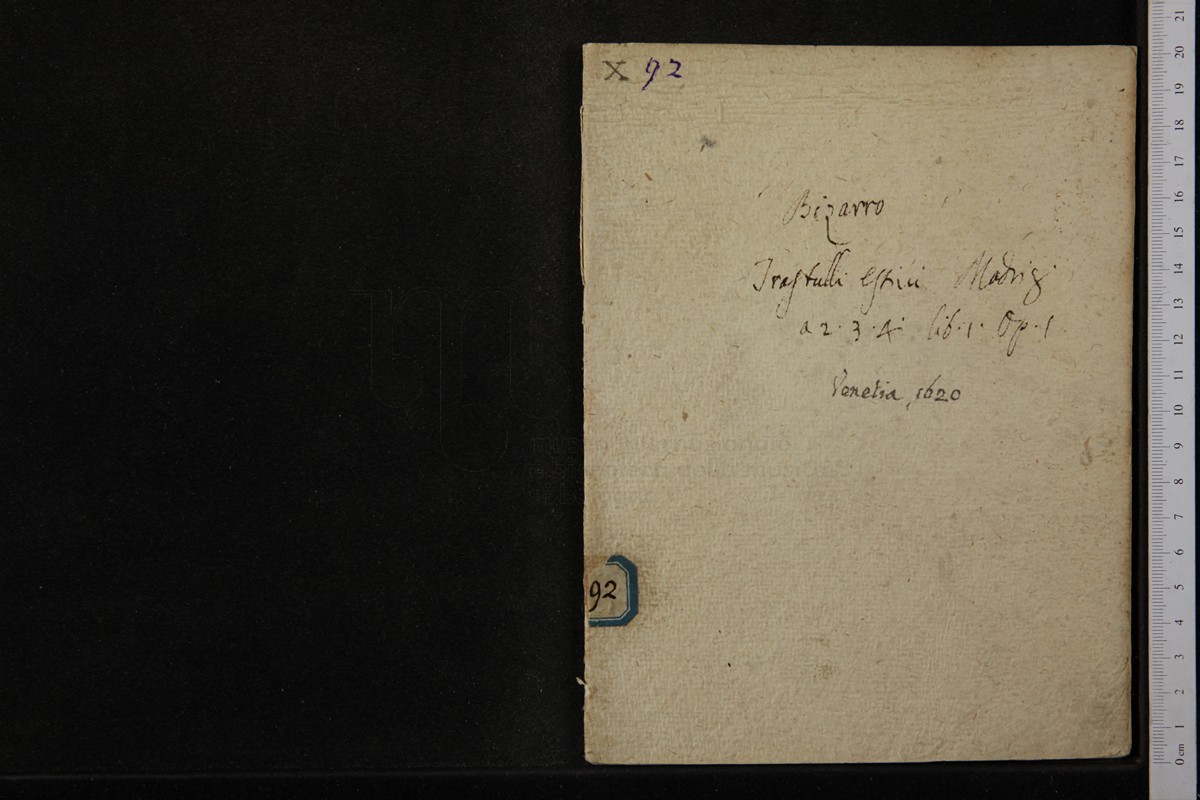 X 92
Bizarro
Trastulli estivi Madrig.
a 2. 3. 4. lib. 1. Op. 1
Venetia, 1620
92
museo internazionale
e biblioteca della musica
21
20
19
18
17
16
15
14
13
12
11
10
9
8
7
6
5
4
3
2
1
0 cm